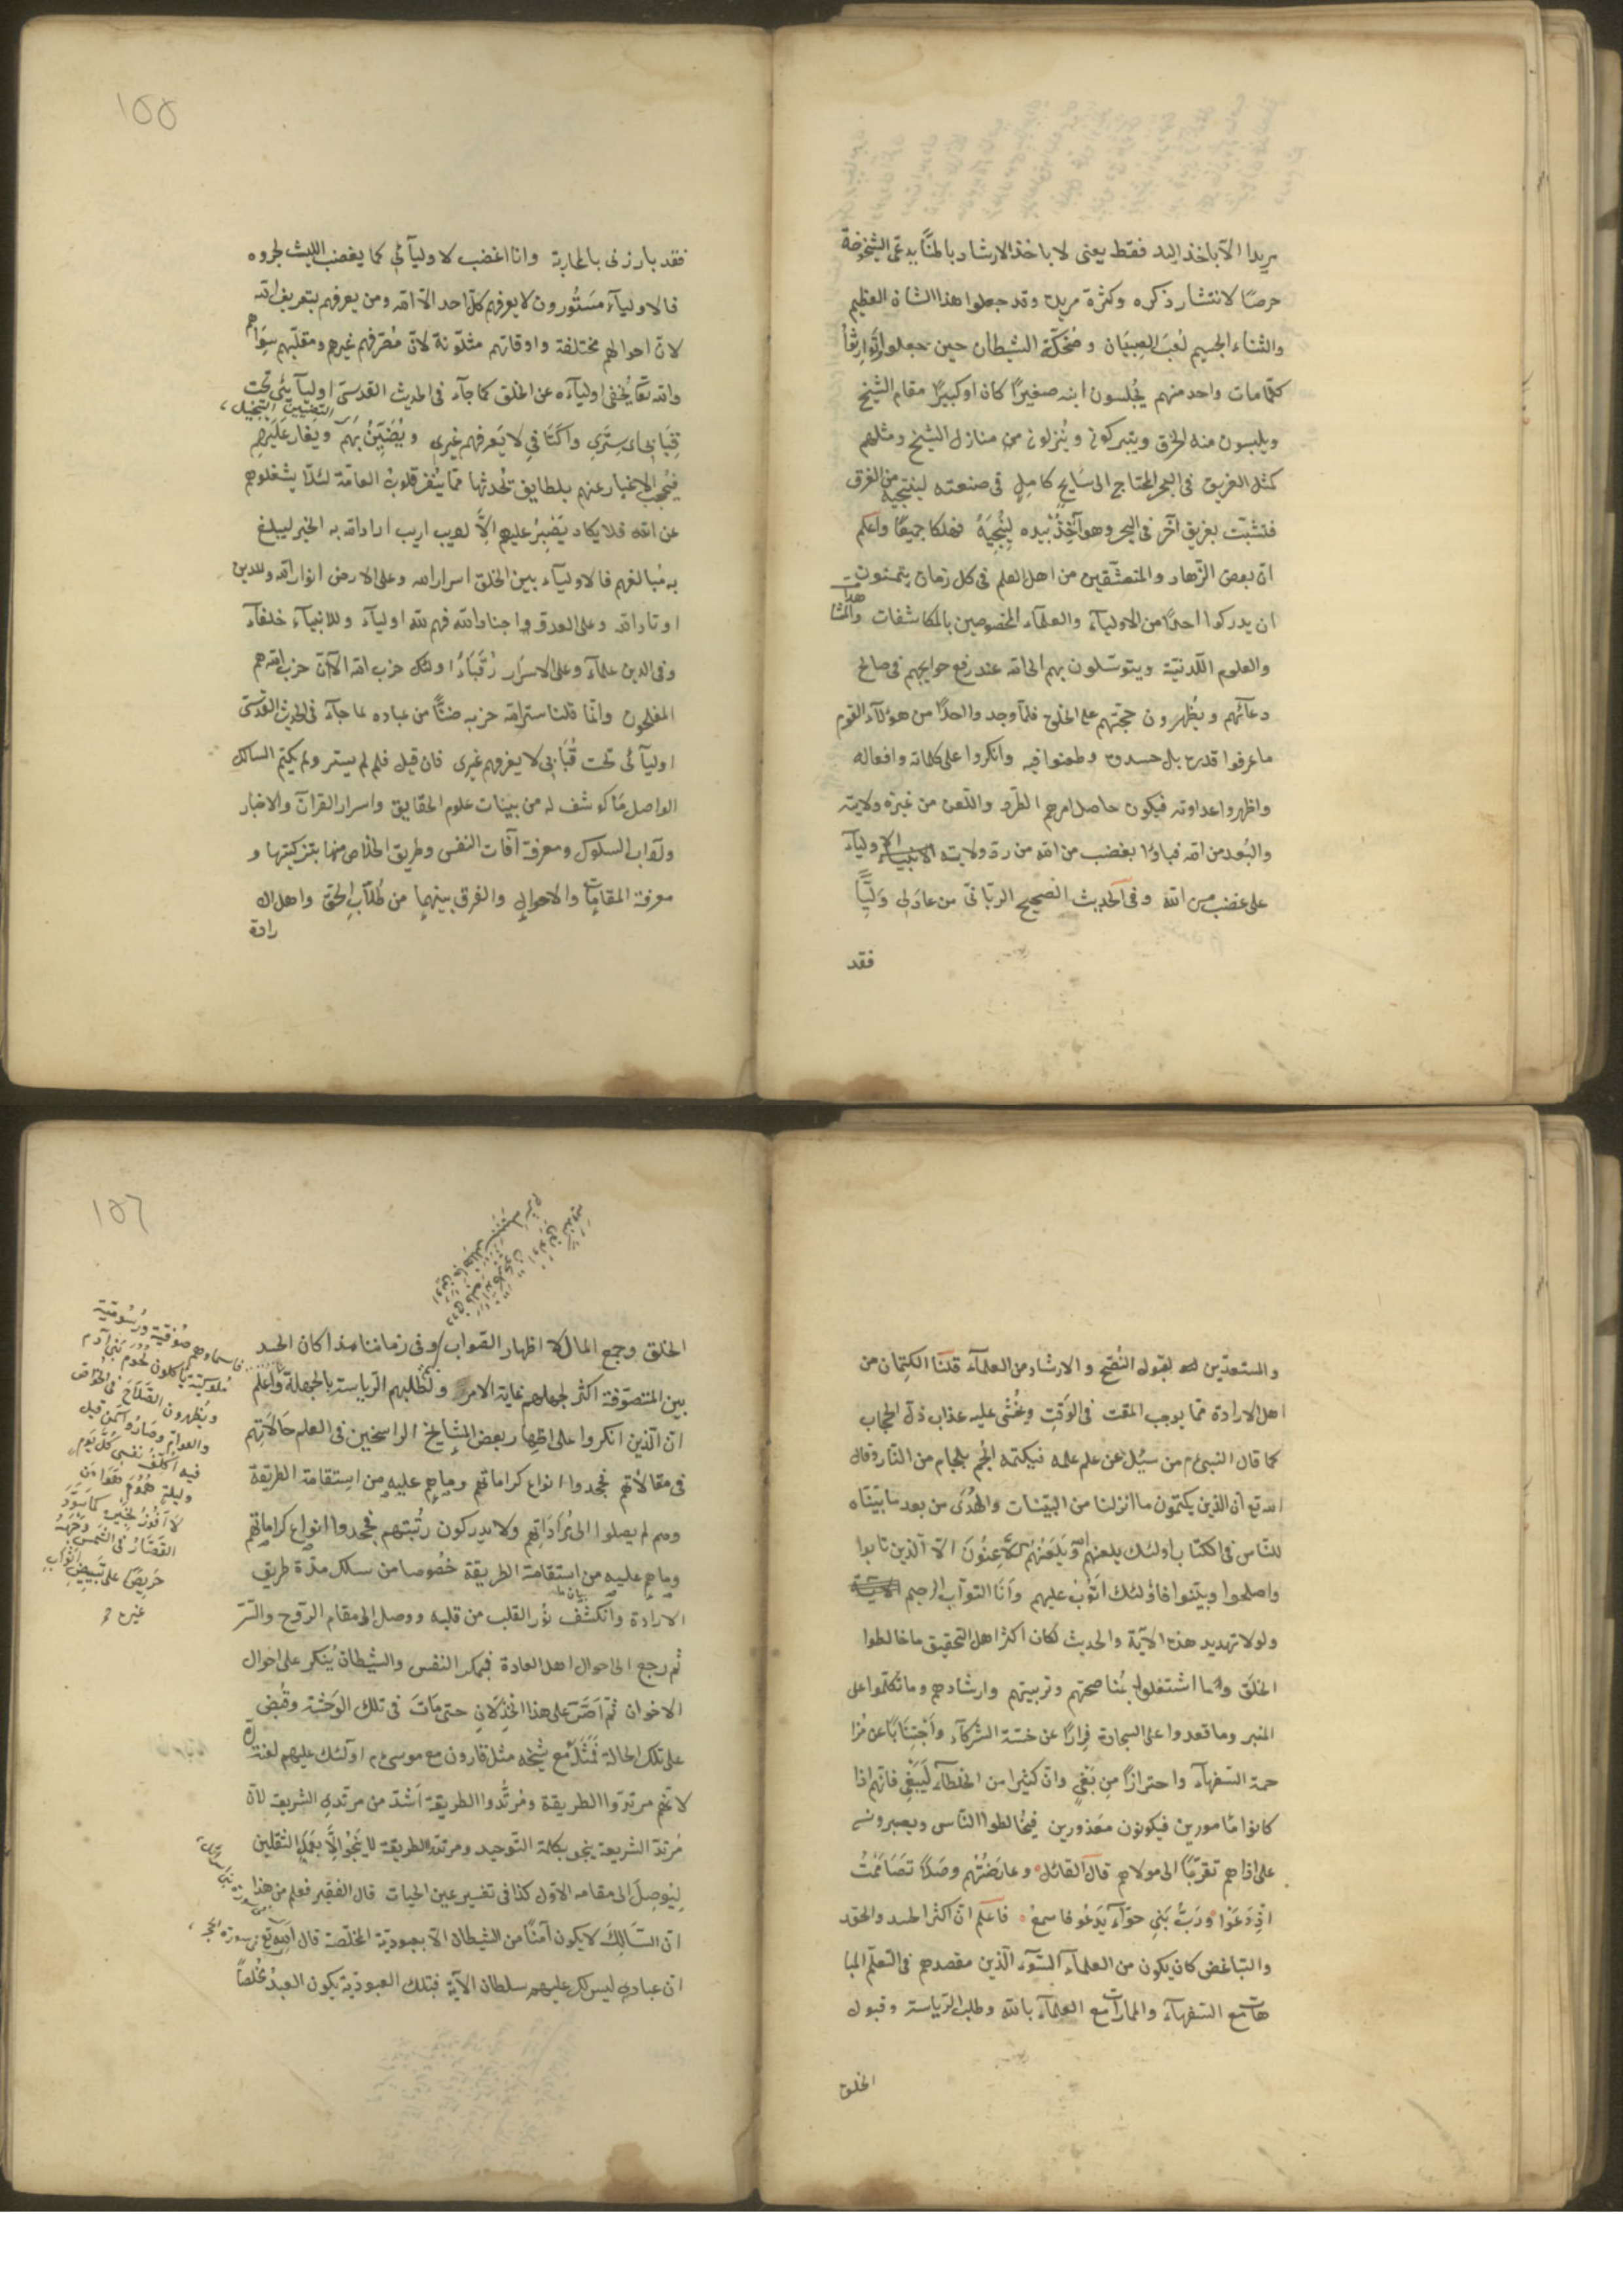 مريدا الا باخذ اليد فقط يعني لا باخذ الارشاد بالمنا يدعى الشيخوخة
حرصًا لانتشار ذكره وكثرة مريده وقد جعلوا هذا الشان العظيم
والثناء الجسيم لُعبَ الصبيَان وضُحكةَ الشيطان حين جعلوا توارثاً
كلّما مات واحد منهم يُجلسون ابنه صغيرًا كان او كبيرًا مقام الشيخ
ويلبسون منه الخرق ويتبركون ويُنزلونه من منازل الشيخ ومثلهم
كمثل الغريق في البحر المحتاج الى سَابحٍ كاملٍ في صنعته لينجيه من الغرق
فتشبّث بغريق آخر في البحر وهو آخِذُ بيده لِيُنجِيَهُ فهلكا جميعًا واعلم
ان بعض الزهاد والمتعشّقين من اهل العلم في كل زمان يتمنّون
ان يدركوا احدًا من الاوليآء والعلمآء المخصوصين بالمكاشفات والمشاهدات
والعلوم اللّدنّيّة ويتوسّلون بهم الى الله عند رفع حوايجهم في صالح
دعآئهم ويُظهرون حجّتهم على الخلق فلمّا وجد واحدًا من هؤلآء القوم
ما عرفوا قدره بل حسدوه وطعنوا فيه وانكروا على كلماته وافعاله
واظهروا عداوته فيكون حاصل امرهم الطّرد واللّعن من غيرة ولايته
والبُعد من الله فباؤا بغضب من الله من ردّ ولايته الانبياء الاوليآء
على غضب من الله وفي الحديث الصحيح الربّانيّ من عادَ لِي وَلِيًّا
فقد
١٥٥
فقد بارزني بالمحاربة وانا اغضب لاوليآئي كما يغضب الليث لجروه
فالاوليآء مَستُورون لا يعرفهم كلّ احد الّا الله ومن يعرفهم بتعريف الله
لانّ احوالهم مختلفة واوقاتهم متلوّنة لانّ مُصرّفهم غيرهم ومقلّبهم سِوَاهم
والله تعا يُخفى اوليآءه عن الخلق كما جآء في الحديث القدسيّ اوليآئي تحت
قِبَابي اى سِترَي وَاكنَافي لا يَعرفهم غيري ويُضَيِّنُ بهم ويَغار عَلَيهِم
فيُحجب الاغيار عنهم بلطايف تُحدثها ممّا يُنفّر قلوبُ العامّة لئلّا يشغلوهم
عن الله فلا يكاد يَصْبِرُ عليهم اِلَّا لبيب اريب اراد الله به الخير ليبلغ
به مَبالغهم فالاوليآء بين الخلق اسرار الله وعلى الارض انوار الله وللدين
اوتاد الله وعلى العدوّ اجناد الله فهم لله اوليآء وللانبيآء خلفآء
وفي الدين علمآء وعلى الاسرَار رُقَبَاءُ اولئك حزب الله الآ انّ حزب الله هم
المفلحون وانّما قلنا ستر الله حزبه ضنًّا من عباده لما جآء في الحديث القدسيّ
اوليآئي تحت قُبَابي لا يعرفهم غيري فان قيل فلم لم يستر ولم يكتم السالك
الواصل مَا كوشف له من بيّنات علوم الحقايق واسرار القرآن والاخبار
وآداب السلوك ومعرفة آفات النفس وطريق الخلاص منها بتزكيتها و
معرفة المقامات والاحوال والفرق بينهما من طُلّابِ الحق واهل الا
رادة
والمستعدّين لقبول النُصح والارشاد من العلمآء قلنا الكتمان من
اهل الارادة ممّا يوجب المقت في الوَقتِ ويُخشى عليه عذاب ذلّ الحجاب
كما قال النبيّ ءم من سُئِل عن علم علمه فيكتمه اُلجم بلجام من النّار وقال
الله تع ان الذين يكتمون ما انزلنا من البيّنات والهُدَى من بعد ما بيّنّاه
للنّاس في الكتاب اولئك يلعنهم الله وَيَلعَنُهُم اللّاعِنُونَ الّا الذين تابوا
واصلحوا وبيّنوا فاؤلئك اَتُوبُ عليهم وَاَنَا التوّاب الرحيم الآية
ولولا تهديد هذه الآية والحديث لكان اكثر اهل التحقيق ما خالطوا
الخلق وما اشتغلوا بمُناصحتهم وتربيتهم وارشادهم وما تكلّموا على
المنبر وما قعدوا على السجادة فِرارًا عن خسّة الشركآء وَاجتنَابًا عن مُزا
حمة السّفهآء واحترازًا مِن بَغيٍ وانّ كثيرا من الخلطآء لَيَبغي فانّهم اذا
كانوا مَامورين فيكونون مَعذورين فيُخالطوا النّاس ويصبرونه
على اذاهم تقرّبًا الى مولاهم قال القائل وعارَضتُهم وصَلاً تصَامَمتُ
اِذ دَعَوا ورَبُّ بَني حوّآء يَدعُو فاسمعُ فاعلم انّ اكثر الحسد والحقد
والتباغض كان يكون من العلمآء السّوء الّذين مقصدهم في التعلّم المبا
هات مع السّفهآء والمارات مع العلمآء بالله وطلب الرّياسة وقبول
الخلق
١٥٦
الخلق وجمع المال لا اظهار الصّواب وفي زماننا هذا كان الحسد
بين المتصوّفة اكثر لجهلهم غاية الامر ولطلبهم الرّياسة بالجهلة واعلم
ان الّذين انكروا على اظهار بعض المشايخ الراسخين في العلم حَالاتِهم
في مقالاتهم فجحدوا انواع كراماتهم وماهم عليه من استِقامة الطريقة
وهم لم يصلوا الى مُرادَاتِهم ولا يدركون رُتبتهم فجحدوا انواع كراماتهم
وماهم عليه من استقامة الطريقة خصُوصا من سلك مدّة طريق
الارادة وانكشف نُور القلب من قلبه ووصل الى مقام الرّوح والسّرّ
ثم رجع الى احوال اهل العادة فيمكر النفس والشيطان يُنكر على احوال
الاخوان ثمّ اَصَرَّ على هذا الخِذلانِ حتى مَاتَ في تلك الوَحشة وقُبض
على تلك الحالة فَمَثَلُهُ مع شيخه مثل قارون مع موسى ءم اولئك عليهم لعنة الله
لانّهم مرتدّوا الطريقة ومُرتدُّوا الطريقة اَشدّ من مرتدي الشريعة لانّ
مُرتدّ الشريعة ينجو بكلمة التّوحيد ومرتدّ الطريقة لا يَنجُو اِلَّا بعَمَل الثقلين
ليُوصِلَ الى مقامه الاوّل كذا في تفسير عين الحيات قال الفقير فعلم من هذا
ان السَّالِكَ لا يكون آمنًا من الشيطان الّا بعبوديّة المخلَصة قال الله تع في سورة الحجر
انّ عبادي ليس لك عليهم سلطان الآية فبتلك العبوديّة يكون العبدُ مُخلَصاً
صُوفيّة ورُسُوميّة
ياكلون لُحُومَ بَني آدم
ويُظهرون الصّلاحَ في الخواصّ
والعوام وصَارُوا كمَن قيل
فيه اُكلّفُ نفسى كلّ يَوم
وليلة هُمُومَ هَوًى مَن
لا اَفُوزُ بخَيره كما سَوَّدَ
القصّارُ في الشمس وَجهَهُ
حَرِيصًا على تَبييضِ اَثوَابِ
غيره